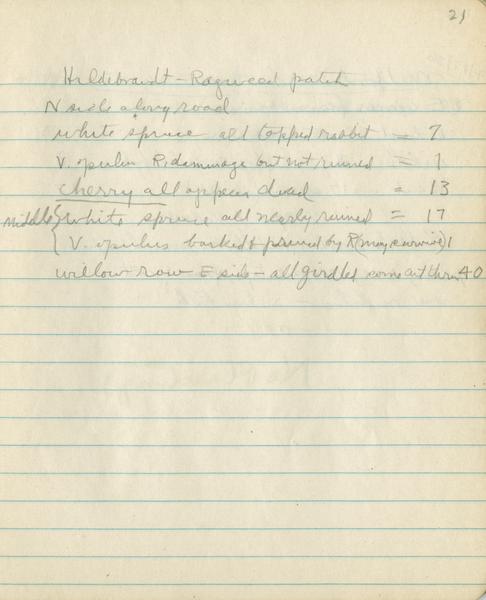 21
Hildebrandt - Ragweed patch
N side along road
white spruce all topped rabbit = 7
V. opulus R. dammage but not ruined = 1
cherry all appear dead = 13
middle { white spruce all nearly ruined = 17
V. opulus barked & pruned by R (may survive) 1
willow row E side - all girdled some cut thru 40